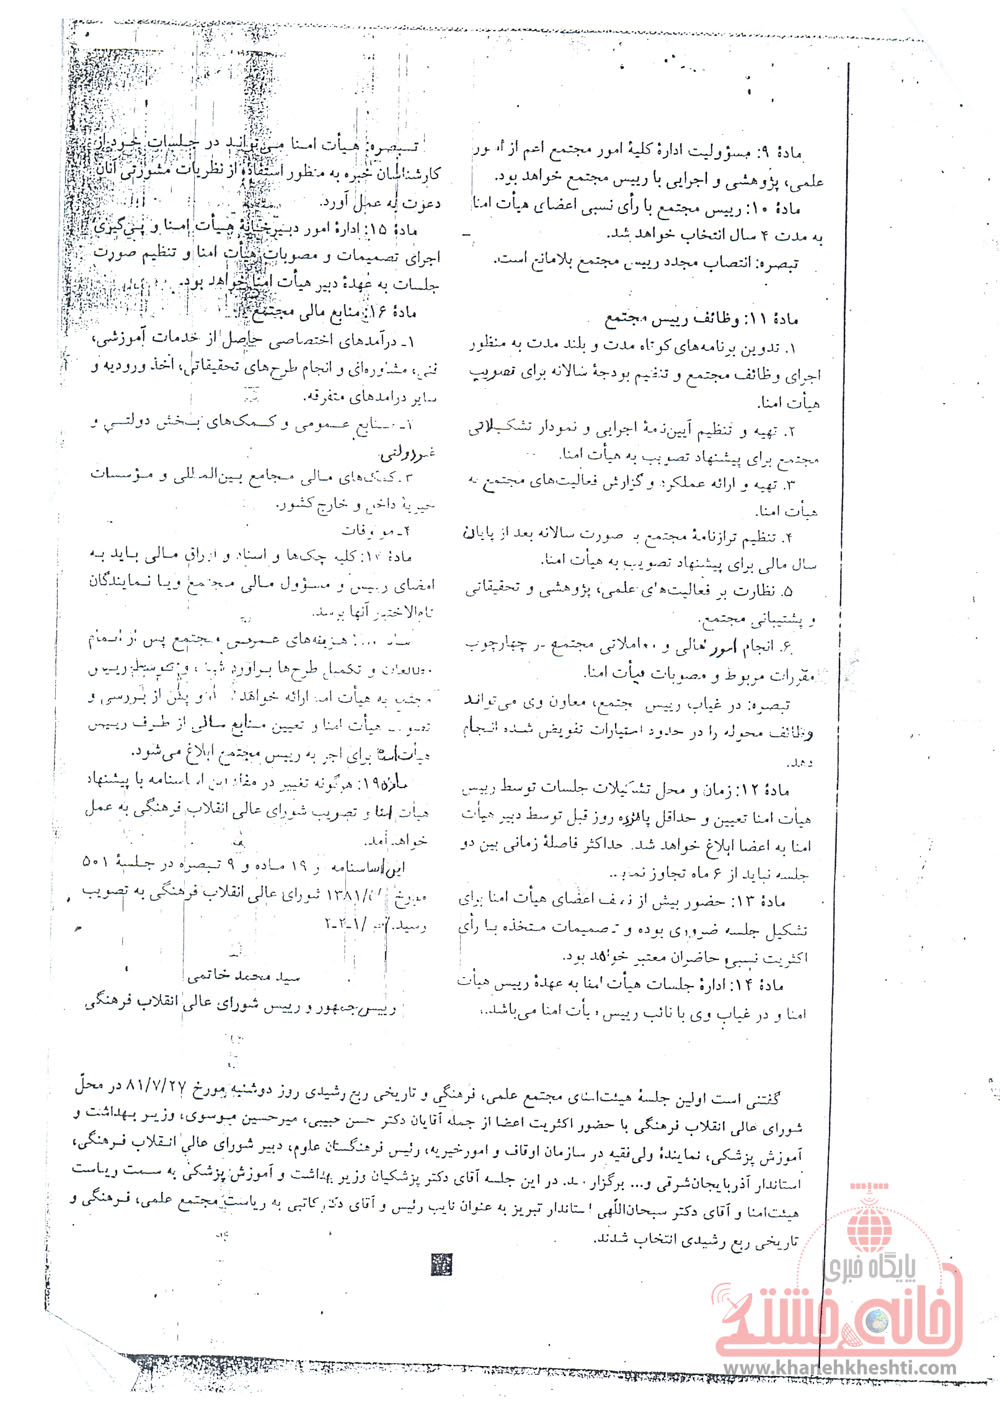 مادهٔ ۹: مسؤولیت ادارهٔ کلیهٔ امور مجتمع اعم از امور
علمی، پژوهشی و اجرایی با رییس مجتمع خواهد بود.
مادهٔ ۱۰: رییس مجتمع با رأی نسبی اعضای هیأت امنا
به مدت ۴ سال انتخاب خواهد شد.
تبصره: انتصاب مجدد رییس مجتمع بلامانع است.
مادهٔ ۱۱: وظائف رییس مجتمع
۱. تدوین برنامه‌های کوتاه مدت و بلند مدت به منظور
اجرای وظائف مجتمع و تنظیم بودجهٔ سالانه برای تصویب
هیأت امنا.
۲. تهیه و تنظیم آیین‌نامهٔ اجرایی و نمودار تشکیلاتی
مجتمع برای پیشنهاد تصویب به هیأت امنا.
۳. تهیه و ارائه عملکرد و گزارش فعالیت‌های مجتمع به
هیأت امنا.
۴. تنظیم ترازنامهٔ مجتمع به صورت سالانه بعد از پایان
سال مالی برای پیشنهاد تصویب به هیأت امنا.
۵. نظارت بر فعالیت‌های علمی، پژوهشی و تحقیقاتی
و پشتیبانی مجتمع.
۶. انجام امور مالی و معاملاتی مجتمع در چهارچوب
مقررات مربوط و مصوبات هیأت امنا.
تبصره: در غیاب رییس مجتمع، معاون وی می‌تواند
وظائف محوله را در حدود اختیارات تفویض شده انجام
دهد.
مادهٔ ۱۲: زمان و محل تشکیلات جلسات توسط رییس
هیأت امنا تعیین و حداقل پانزده روز قبل توسط دبیر هیأت
امنا به اعضا ابلاغ خواهد شد. حداکثر فاصلهٔ زمانی بین دو
جلسه نباید از ۶ ماه تجاوز نماید.
مادهٔ ۱۳: حضور بیش از نصف اعضای هیأت امنا برای
تشکیل جلسه ضروری بوده و تصمیمات متخذه با رأی
اکثریت نسبی حاضران معتبر خواهد بود.
مادهٔ ۱۴: ادارهٔ جلسات هیأت امنا به عهدهٔ رییس هیأت
امنا و در غیاب وی با نائب رییس هیأت امنا می‌باشد.
تبصره: هیأت امنا می‌تواند در جلسات خود از
کارشناسان خبره به منظور استفاده از نظریات مشورتی آنان
دعوت به عمل آورد.
مادهٔ ۱۵: ادارهٔ امور دبیرخانهٔ هیأت امنا و پی‌گیری
اجرای تصمیمات و مصوبات هیأت امنا و تنظیم صورت
جلسات به عهدهٔ دبیر هیأت امنا خواهد بود.
مادهٔ ۱۶: منابع مالی مجتمع
۱ـ درآمدهای اختصاصی حاصل از خدمات آموزشی،
فنی، مشاوره‌ای و انجام طرح‌های تحقیقاتی، اخذ ورودیه و
سایر درامدهای متفرقه.
منابع عمومی و کمک‌های بخش دولتی و
غیردولتی
۳ـ کمک‌های مالی مجامع بین‌المللی و مؤسسات
خیریهٔ داخل و خارج کشور.
۴ـ موقوفات
مادهٔ ۱۷: کلیه چک‌ها و اسناد و اوراق مالی باید به
امضای رییس و مسؤول مالی مجتمع و یا نمایندگان
تام‌الاختیار آنها برسد.
هزینه‌های عمومی مجتمع پس از انجام
مطالعات و تکمیل طرح‌ها برآورد شده و توسط رییس
مجتمع به هیأت امنا ارائه خواهد شد و پس از بررسی و
تصویب هیأت امنا و تعیین منابع مالی از طرف رییس
هیأت امنا برای اجرا به رییس مجتمع ابلاغ می‌شود.
مادهٔ ۱۹: هرگونه تغییر در مفاد این اساسنامه با پیشنهاد
هیأت امنا و تصویب شورای عالی انقلاب فرهنگی به عمل
خواهد آمد.
این اساسنامه در ۱۹ ماده و ۹ تبصره در جلسهٔ ۵۰۱
مورخ ۱۳۸۱/ شورای عالی انقلاب فرهنگی به تصویب
رسید.
سید محمد خاتمی
رییس‌جمهور و رییس شورای عالی انقلاب فرهنگی
گفتنی است اولین جلسهٔ هیئت‌امنای مجتمع علمی، فرهنگی و تاریخی ربع رشیدی روز دوشنبه مورخ ۸۱/۷/۲۷ در محلّ
شورای عالی انقلاب فرهنگی با حضور اکثریت اعضا از جمله آقایان دکتر حسن حبیبی، میرحسین موسوی، وزیر بهداشت و
آموزش پزشکی، نمایندهٔ ولی‌فقیه در سازمان اوقاف و امورخیریه، رئیس فرهنگستان علوم، دبیر شورای عالی انقلاب فرهنگی،
استاندار آذربایجان‌شرقی و... برگزار شد. در این جلسه آقای دکتر پزشکیان وزیر بهداشت و آموزش پزشکی به سمت ریاست
هیئت‌امنا و آقای دکتر سبحان‌اللّهی استاندار تبریز به عنوان نایب رئیس و آقای دکتر کاتبی به ریاست مجتمع علمی، فرهنگی و
تاریخی ربع رشیدی انتخاب شدند.
پایگاه خبری
خانه خشتی
www.khanehkheshti.com